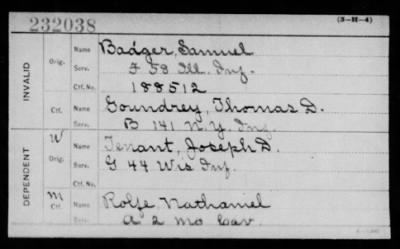 232038
(3-H-4)
INVALID
Orig.
Name Badger, Samuel
Serv. F 58 Ill. Inf.
Ctf. No. 188512
Ctf.
Name Goundrey, Thomas D.
Serv. B 141 N.Y. Inf.
DEPENDENT
W
Orig.
Name Tenant, Joseph D.
Serv. G 44 Wis Inf.
Ctf. No.
M
Ctf.
Name Rolfe, Nathaniel
Serv. A 2 Mo Cav.